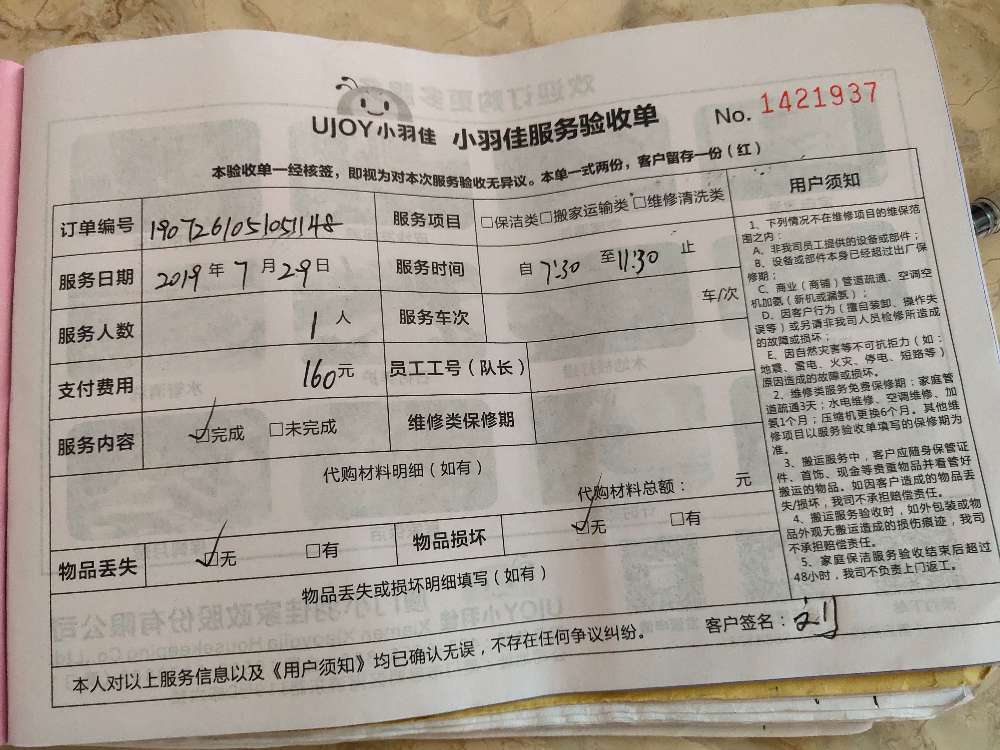 UJOY小羽佳 小羽佳服务验收单 No. 1421937
本验收单一经核签，即视为对本次服务验收无异议。本单一式两份，客户留存一份（红）
订单编号 1907261051051148 服务项目 □保洁类□搬家运输类□维修清洗类
服务日期 2019年7月29日 服务时间 自7:30至11:30止
服务人数 1人 服务车次 车/次
支付费用 160元 员工工号（队长）
服务内容 ☑完成 □未完成 维修类保修期
代购材料明细（如有）
代购材料总额： 元
物品丢失 ☑无 □有 物品损坏 ☑无 □有
物品丢失或损坏明细填写（如有）
本人对以上服务信息以及《用户须知》均已确认无误，不存在任何争议纠纷。 客户签名：
用户须知
1、下列情况不在维修项目的维保范
围之内：
A、非我司员工提供的设备或部件；
B、设备或部件本身已经超过出厂保
修期；
C、商业（商铺）管道疏通、空调空
机加氨（新机或漏氨）；
D、因客户行为（擅自装卸、操作失
误等）或另请非我司人员检修所造成
的故障或损坏；
E、因自然灾害等不可抗拒力（如：
地震、雷电、火灾、停电、短路等）
原因造成的故障或损坏。
2、维修类服务免费保修期：家庭管
道疏通3天；水电维修、空调维修、加
氨1个月；压缩机更换6个月。其他维
修项目以服务验收单填写的保修期为
准。
3、搬运服务中，客户应随身保管证
件、首饰、现金等贵重物品并看管好
搬运的物品。如因客户造成的物品丢
失/损坏，我司不承担赔偿责任。
4、搬运服务验收时，如外包装或物
品外观无搬运造成的损伤痕迹，我司
不承担赔偿责任。
5、家庭保洁服务验收结束后超过
48小时，我司不负责上门返工。